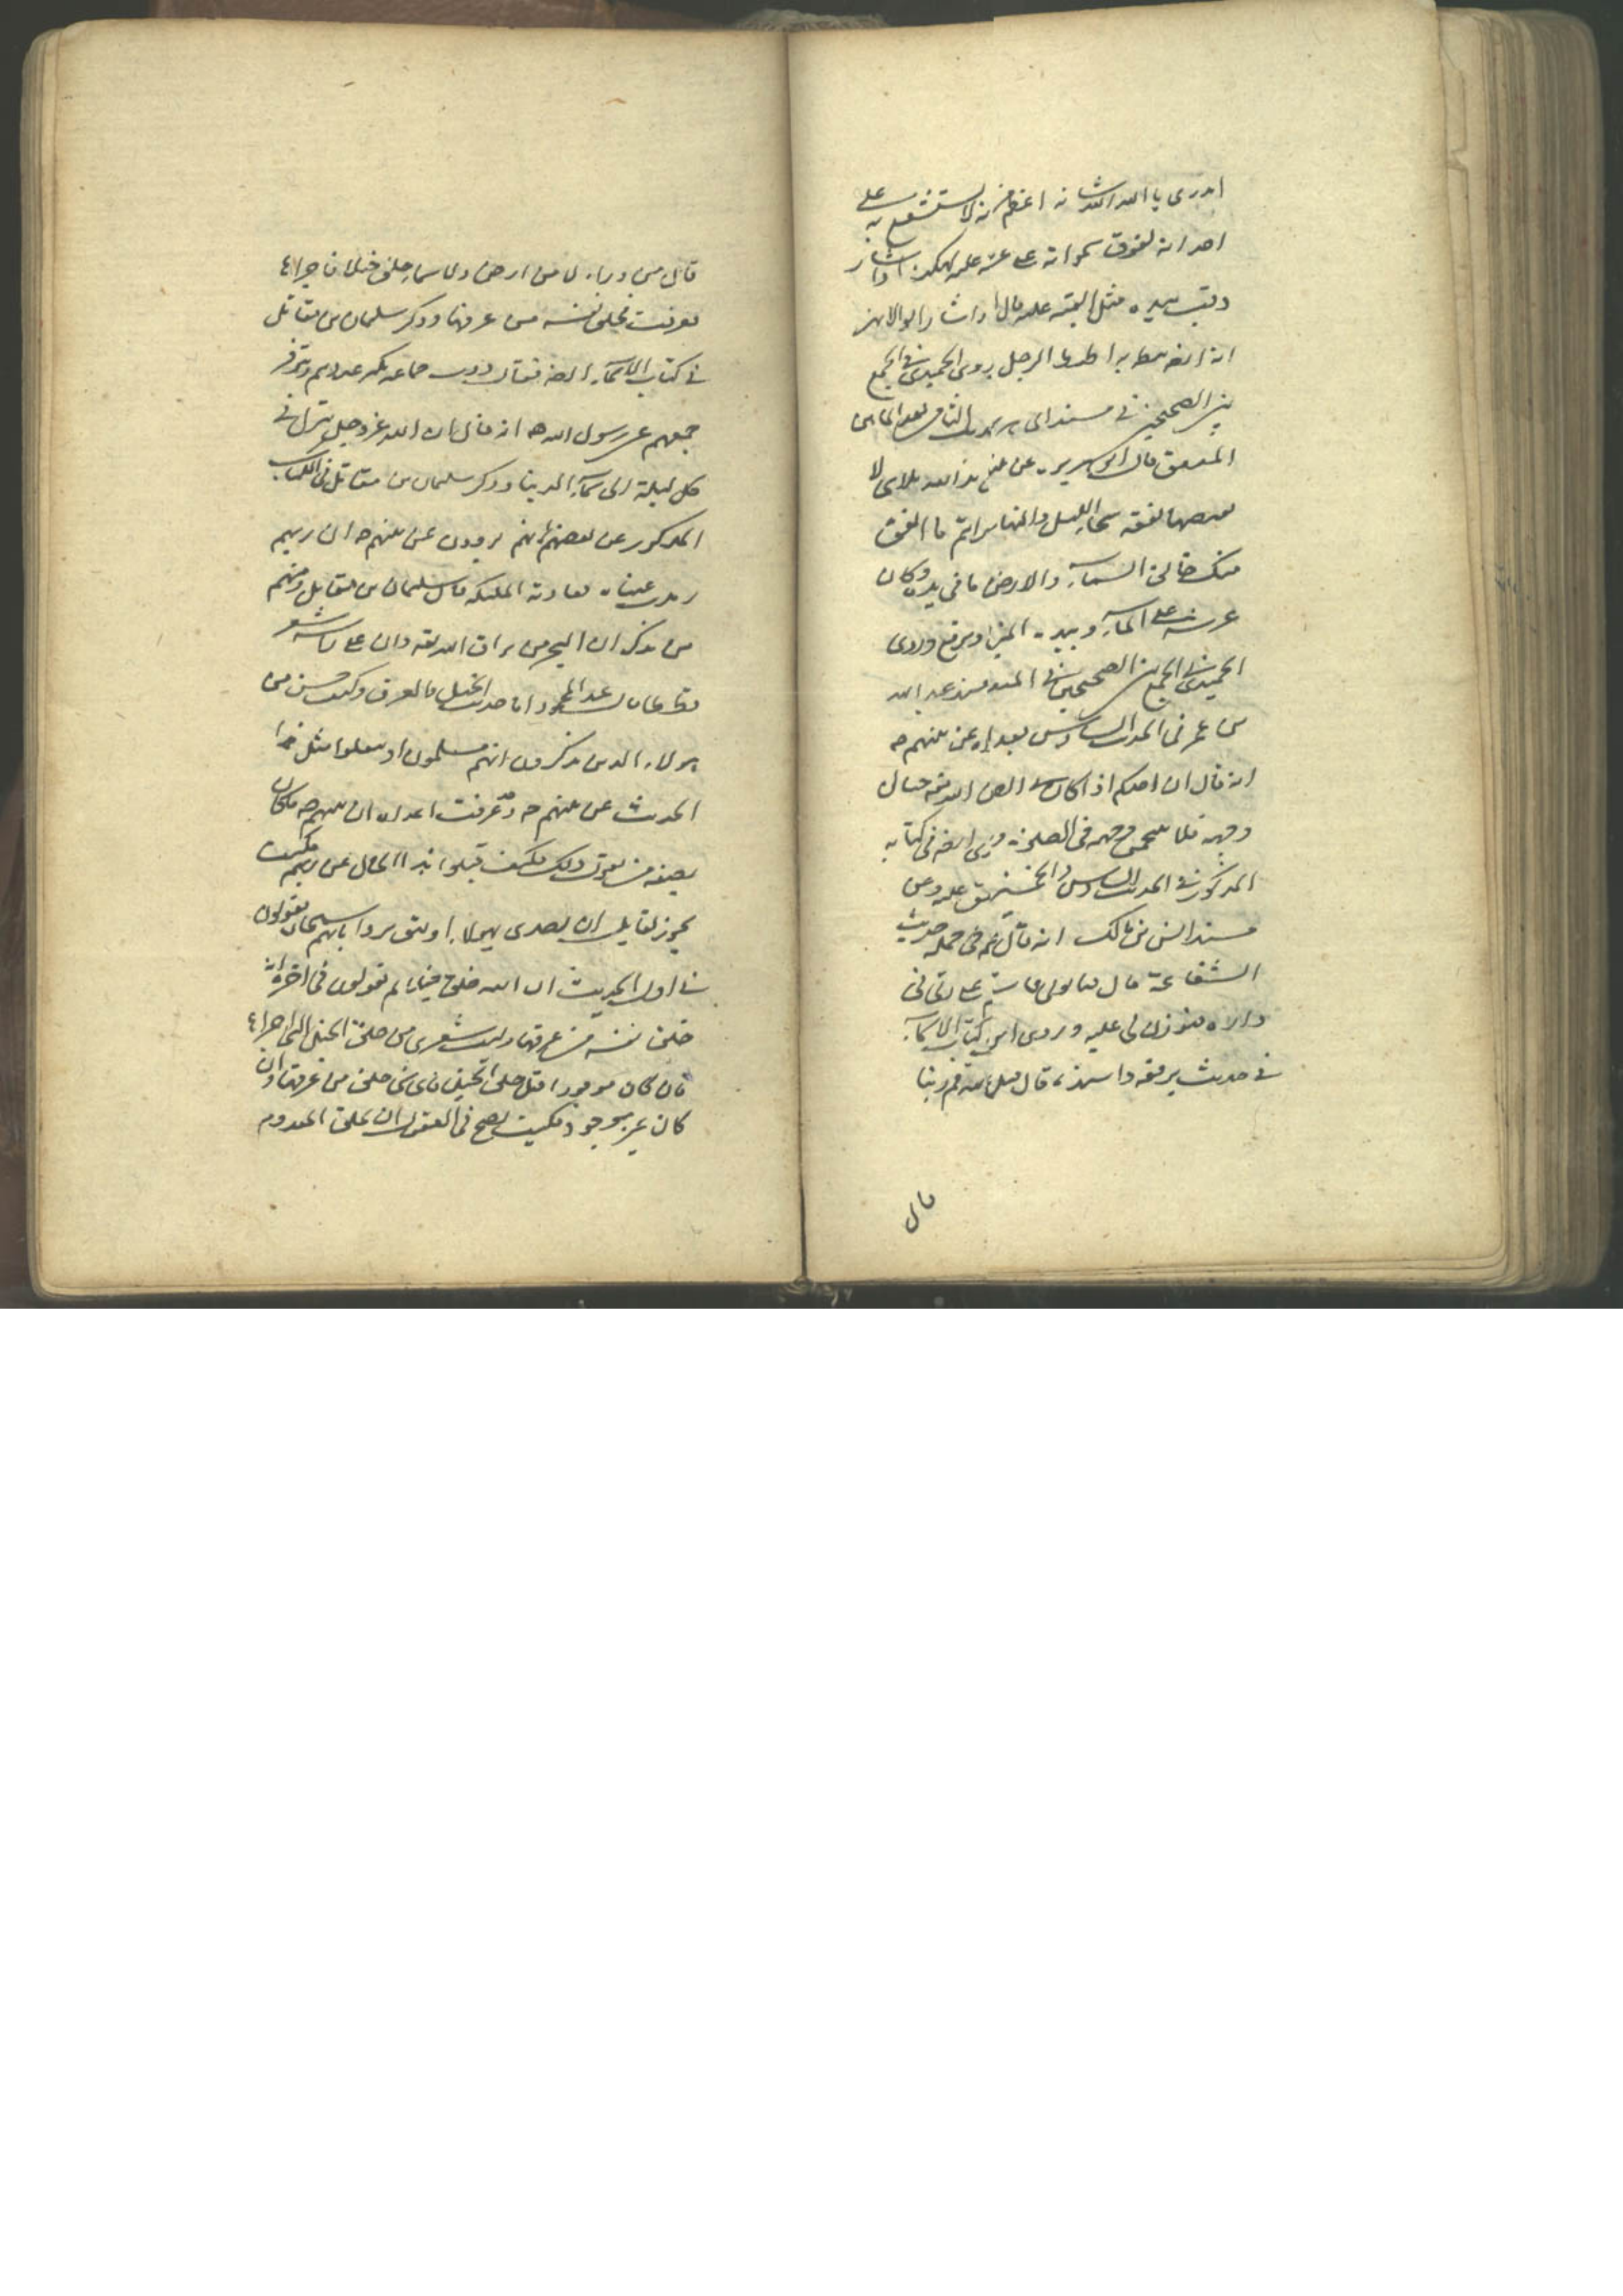 اتدرى يا الله الله شانه اعظم من انه لا يستشفع به على
احد انه لفوق سمواته على عرشه عليه لهكذا واشار
وقبب بيده مثل القبة عليه قال واشار ابو الازهر
انه ايضا يئط به اطيط الرحل روى الحميدى فى الجمع
بين الصحيحين فى مسند ابى هريرة الثانى بعد المائتين
المتفق قال ابو هريرة عن يد الله ملاى لا
يغيضها نفقة سحاء الليل والنهار ارايتم ما انفق
منذ خلق السماء والارض ما فى يده وكان
عرشه على الماء وبيده الميزان ويرفع وروى
الحميدى فى الجمع بين الصحيحين فى مسند عبد الله
بن عمر فى الحديث السادس بعد عن نبيهم ص
انه قال ان احدكم اذا كان فى الصلوة الله تعه حيال
وجهه فلا وجهه فى الصلوة وروى ايضا فى كتابه
المذكور فى الحديث السادس والخمسين المتفق عليه من
مسند انس بن مالك انه قال عم فى جملة حديث
الشفاعة قال فاستاذن على ربى فى
داره فيؤذن لى عليه وروى فى كتاب الاسماء
فى حديث يرفعه واسنده قال قيل مم ربنا
قال
قال من وراء لا من ارض ولا سماء خلق خيلا فاجراها
فعرقت فخلق نفسه من عرقها وذكر سليمان بن مقاتل
فى كتاب الاسماء ايضا فقال روت جماعة
جميعهم عن رسول الله ص انه قال ان الله عز وجل ينزل فى
كل ليلة الى سماء الدنيا وذكر سليمان بن مقاتل فى الكتاب
المذكور عن بعضهم انهم يروون عن نبيهم ص ان ربهم
رمدت عيناه فعادته الملئكة قال سليمان بن مقاتل ومنهم
من يذكر ان البحر من بزاق الله تعه وان على راسه شعر
قططا قال عبد المحمود اما حديث الخيل والعرق وكيف حسن من
هولاء الذين يذكرون انهم مسلمون ان ينقلوا مثل هذا
الحديث عن نبيهم ص وقد عرفت اعداء ان نبيهم ص ما كان
بصفة من يقول ذلك فكيف قبلوا هذا المحال عن ربهم فكيف
يجوز لعاقل ان يصدق هولاء او يثق بروايانهم سبحان يقولون
فى اول الحديث ان الله خلق خيلا ثم يقولون فى اخره انه
خلق نفسه من عرقها وليت شعرى من خلق الخيل التى اجراها
فان كان موجودا قبل خلق الخيل فاى شى خلق من عرقها وان
كان غير موجود فكيف يصح فى العقول ان يخلق المعدوم